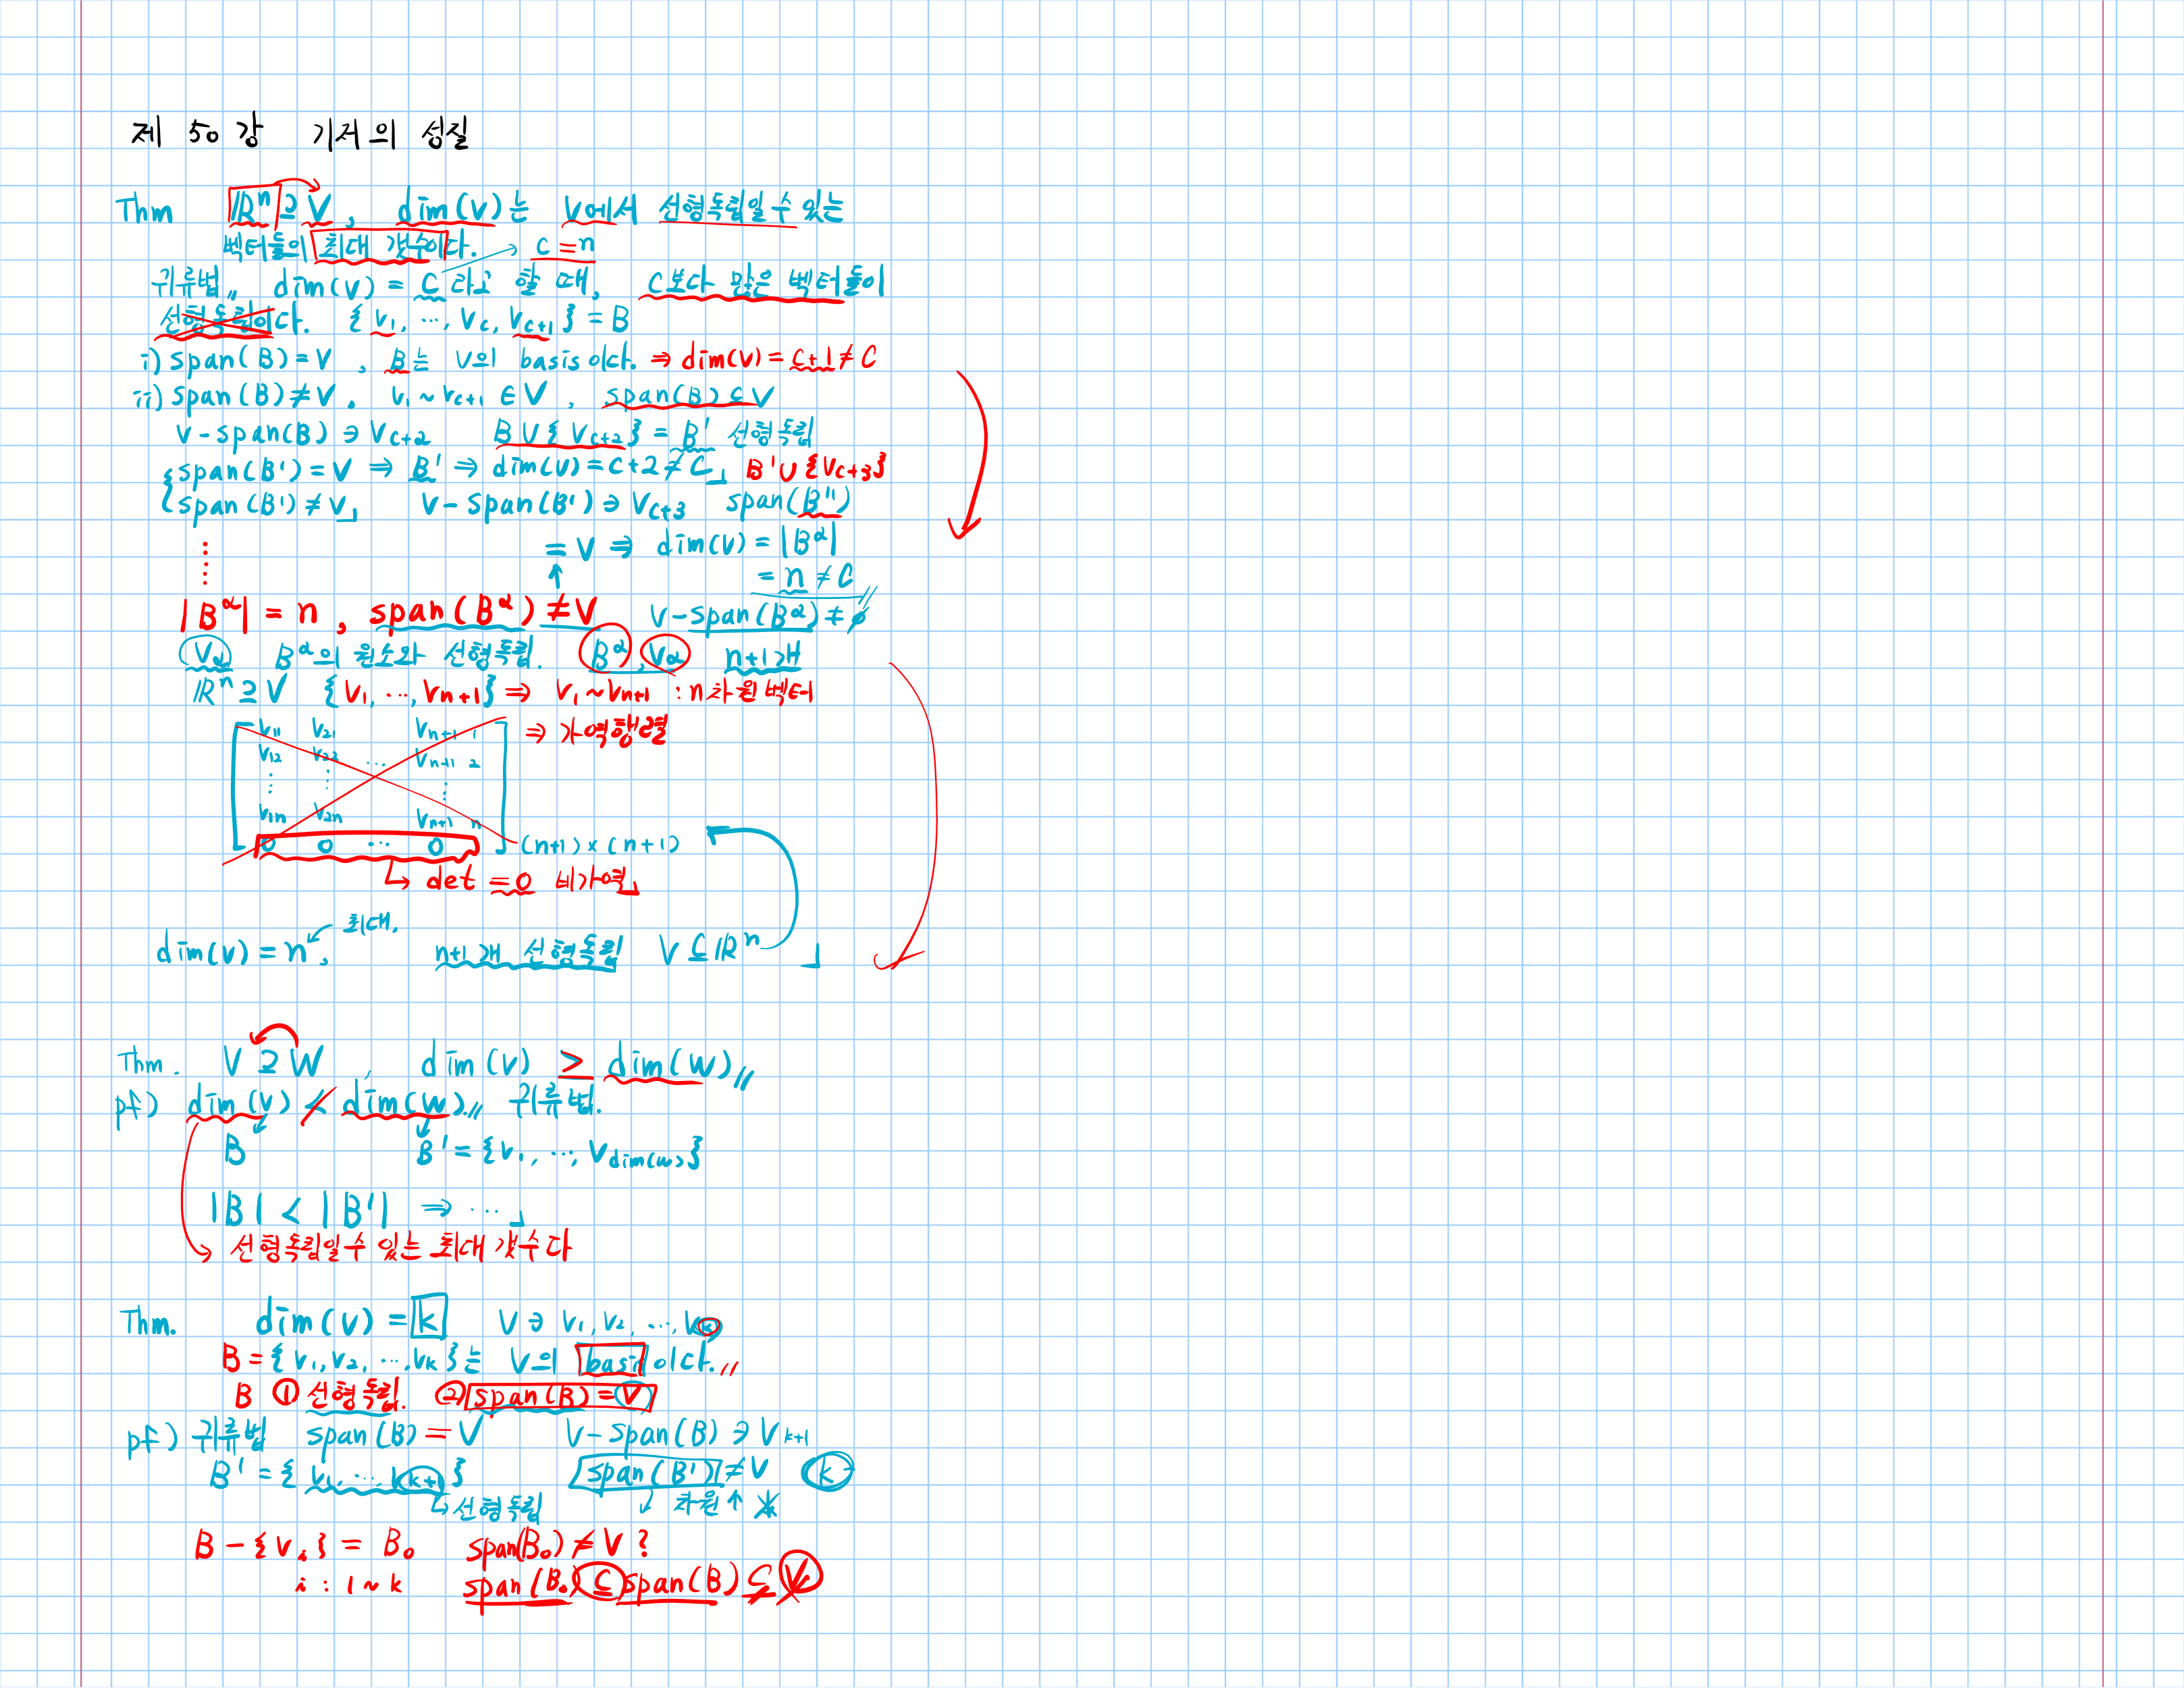 제 50 강 기저의 성질
Thm ℝⁿ ⊇ V, dim(V)는 V에서 선형독립일 수 있는
벡터들의 최대 갯수이다. → c = n
귀류법,, dim(V) = C 라고 할 때, C보다 많은 벡터들이
선형독립이다. {v₁, ⋯, v_c, v_{c+1}} = B
i) span(B) = V, B는 V의 basis이다. ⇒ dim(V) = c+1 ≠ C
ii) span(B) ≠ V, v₁ ~ v_{c+1} ∈ V, span(B) ⊊ V
V - span(B) ∋ v_{c+2} B ∪ {v_{c+2}} = B' 선형독립
span(B') = V ⇒ B' ⇒ dim(V) = c+2 ≠ C 」 B' ∪ {v_{c+3}}
span(B') ≠ V 」 V - span(B') ∋ v_{c+3} span(B'')
⋮ = V ⇒ dim(V) = |B^α|
↑ = n ≠ C
|B^α| = n, span(B^α) ≠ V V - span(B^α) ≠ ∅
v_α B^α의 원소와 선형독립. B^α, v_α n+1개
ℝⁿ ⊇ V {v₁, ⋯, v_{n+1}} ⇒ v₁ ~ v_{n+1} : n차원벡터
v₁₁ v₂₁ v_{n+1 1} ⇒ 가역행렬
v₁₂ v₂₂ ⋯ v_{n+1 2}
⋮ ⋮ ⋮
v_{1n} v_{2n} v_{n+1 n}
0 0 ⋯ 0 (n+1) × (n+1)
↳ det = 0 비가역 」
최대.
dim(V) = n, n+1개 선형독립 V ⊆ ℝⁿ 」
Thm. V ⊇ W dim(V) > dim(W) //
pf) dim(V) < dim(W) // 귀류법.
B B' = {v₁, ⋯, v_{dim(W)}}
|B| < |B'| ⇒ ⋯ 」
→ 선형독립일수 있는 최대 갯수다
Thm. dim(V) = k V ∋ v₁, v₂, ⋯, v_k
B = {v₁, v₂, ⋯, v_k}는 V의 basis이다. //
B ① 선형독립. ② span(B) = V
pf) 귀류법 span(B) = V V - span(B) ∋ v_{k+1}
B' = {v₁, ⋯, v_{k+1}} span(B') ≠ V k
↳ 선형독립 ↙ 차원 ↑ ※
B - {v_i} = B₀ span(B₀) ≠ V ?
i : 1 ~ k span(B₀) ⊆ span(B) ⊊ V